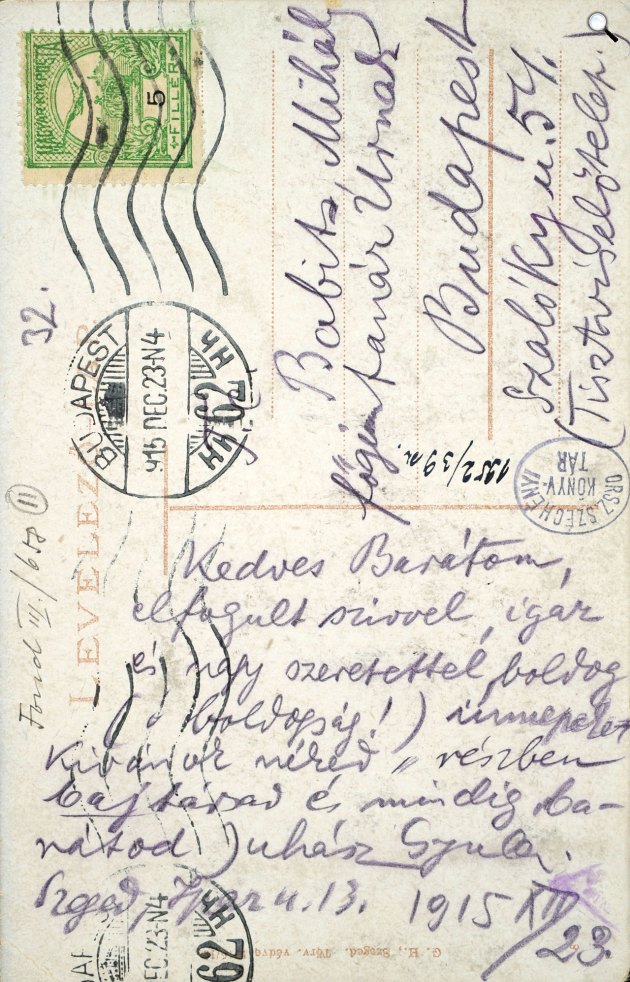 MAGYAR KIR. POSTA
5
FILLÉR
BUDAPEST
915 DEC. 23. N4
62
32.
LEVELEZŐ-LAP.
Babits Mihály
főgimn tanár Úrnak
Budapest
Szalóky u. 54.
(Tisztviselőtelep.)
1952/39 n.
ORSZ. SZÉCHÉNYI
KÖNYV-
TÁR
Fond III./658 11
Kedves Barátom,
elfogult szívvel, igaz
és nagy szeretettel boldog
(ó boldogság!) ünnepeket
kívánok néked, részben
bajtársad és mindig ba-
rátod Juhász Gyula.
Szged, Ipar u. 13. 1915 XII/23.
DEC. 23. N4
62
G. H., Szeged. Törv. védve